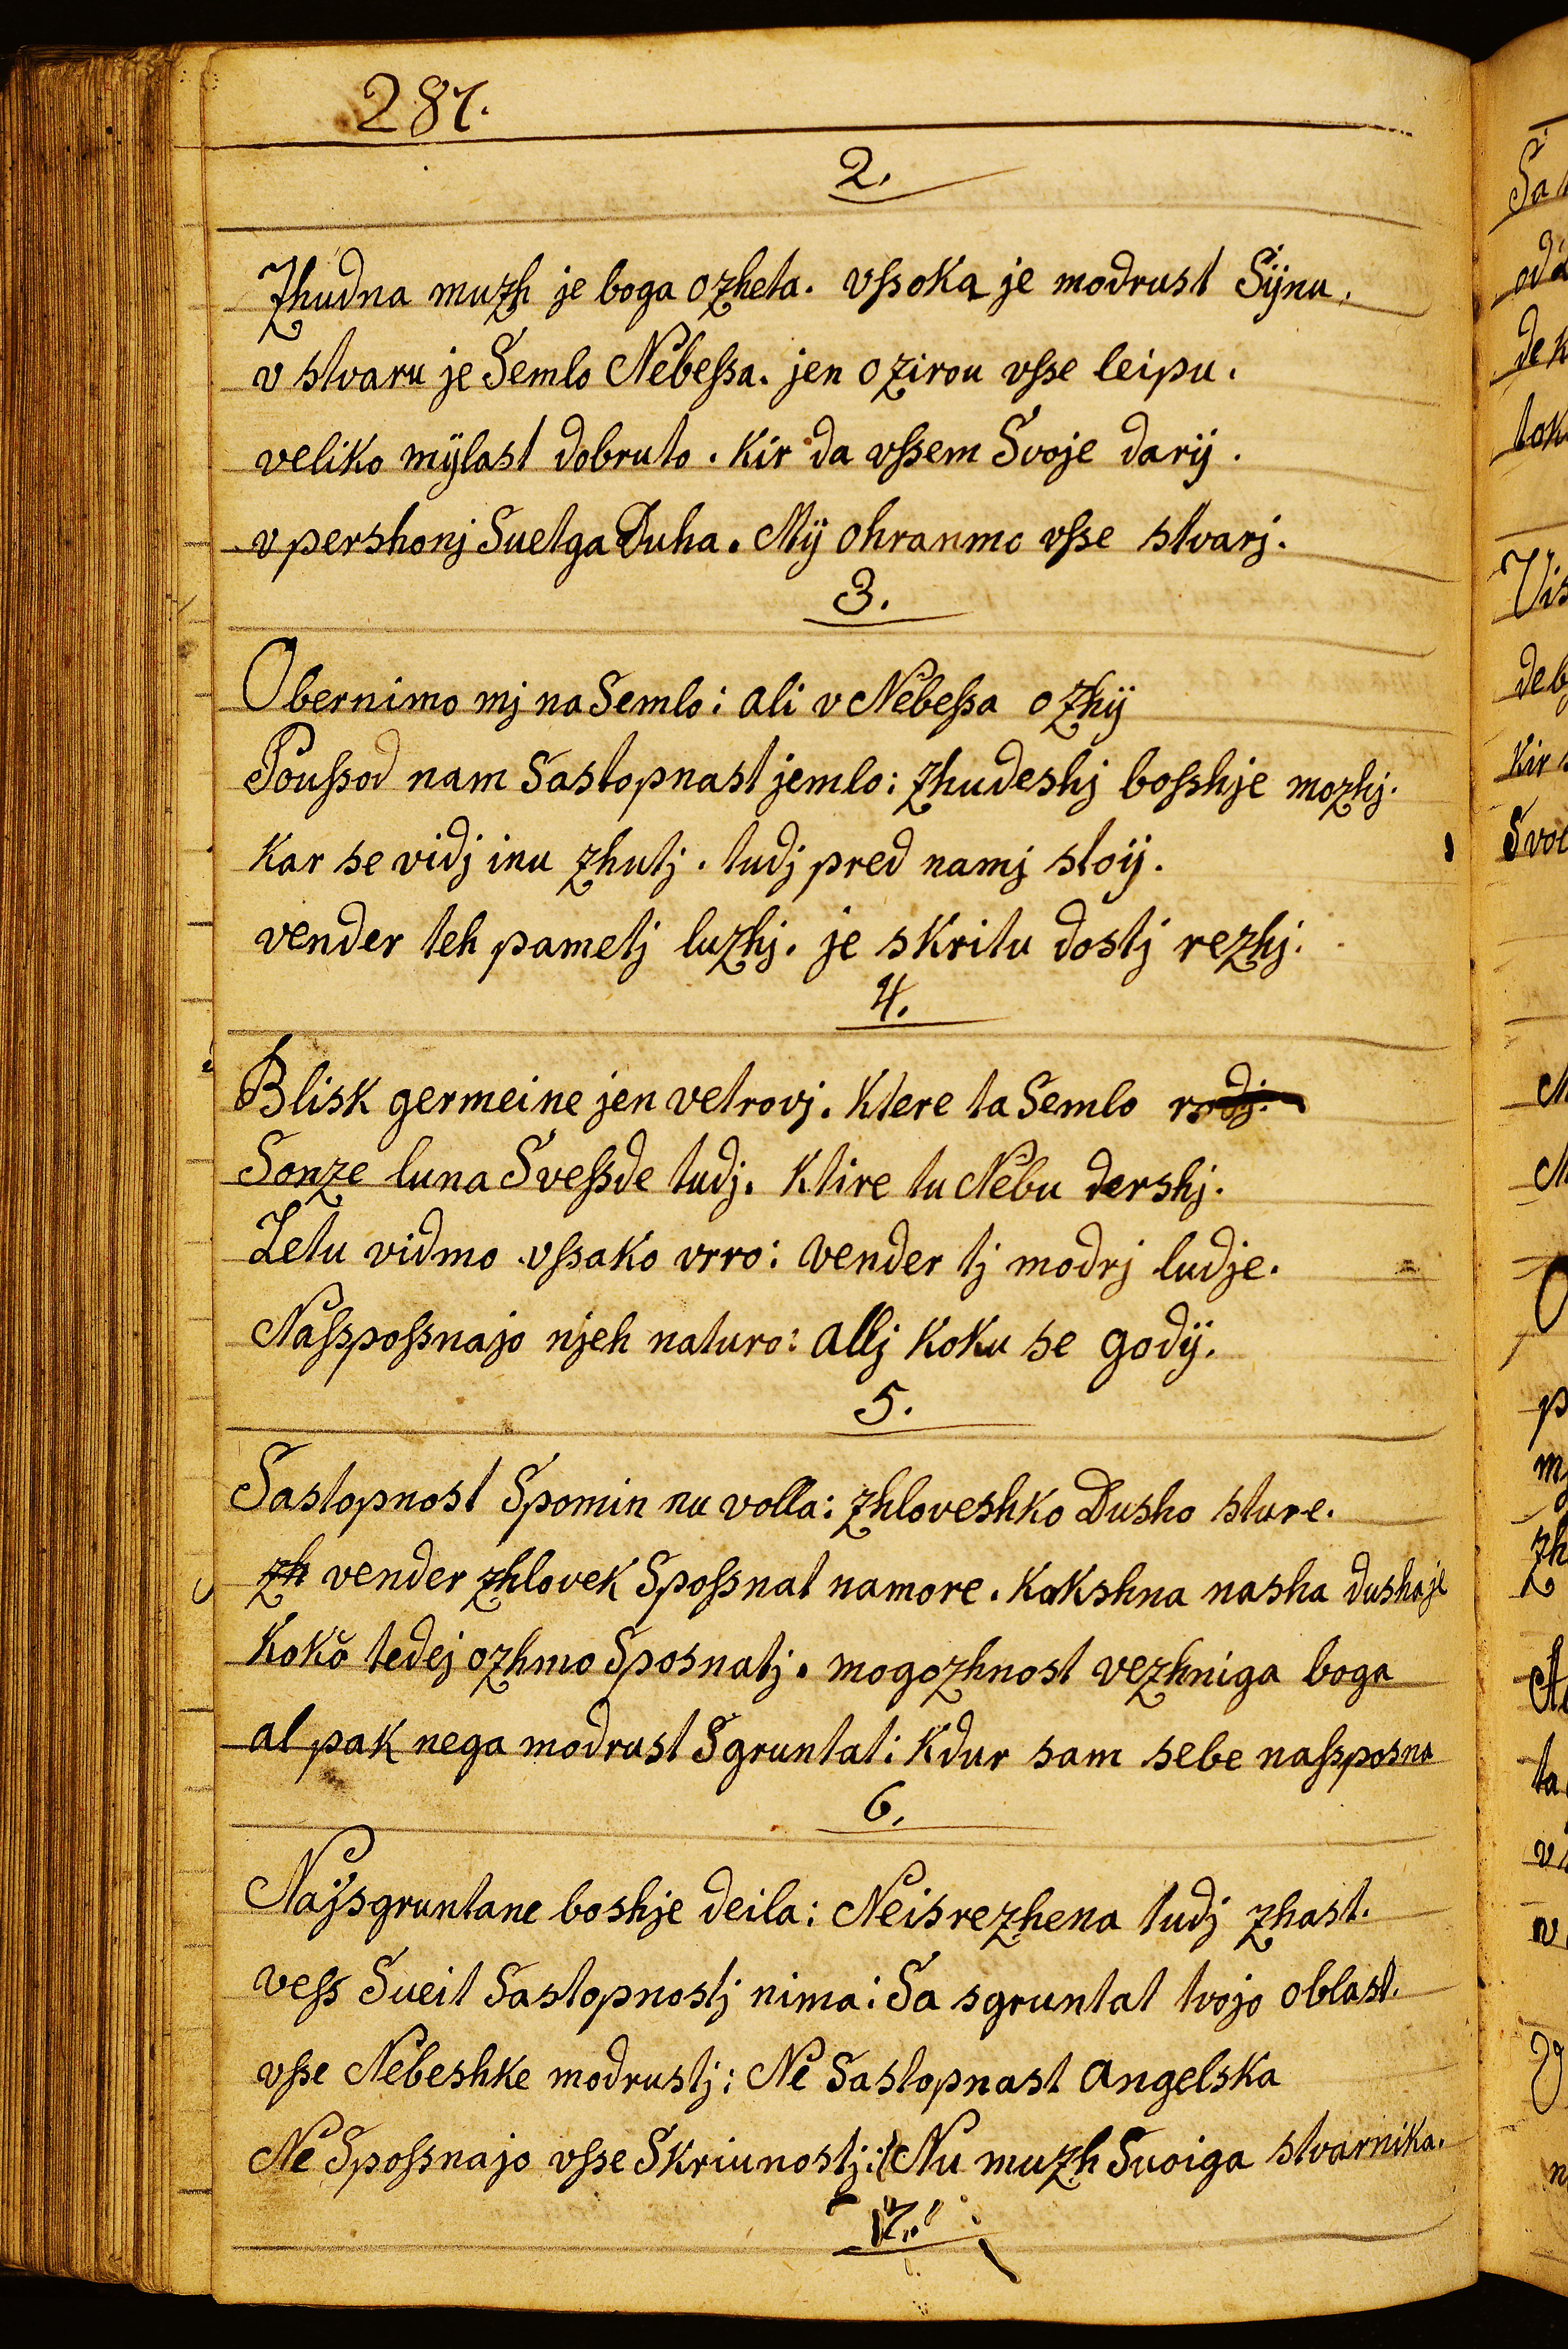 287.
2.
Zhudna muzh je boga ozheta. vſsoka je modrust Sijnu.
v stvaru je Semlo Nebeſsa. jen ozirou vſse leipu.
veliko mÿlast dobruto. kir da vſsem Svoje darij.
v pershonj Suetga Duha. Mÿ ohranmo vſse stvarj.
3.
Obernimo mj na Semlo: ali v Nebeſsa ozhij
Pouſsod nam Sastopnast jemlo: zhudeshj boſshje mozhj.
Kar se vidj inu zhutj. tudj pred namj stoij.
vender teh pametj luzhj. je skritu dostj rezhj.
4.
Blisk germeine jen vetrovj. Ktere ta Semlo rodj.
Sonze luna Sveſsde tudj. Ktire tu Nebu dershj.
Letu vidmo vſsako vrro: vender tj modrj ludje.
Naſspoſsnajo njeh naturo: allj koku se godÿ.
5.
Sastopnost Spomin nu volla: zhloveshko Dusho sture.
zh vender zhlovek Spoſsnat namore. kakshna nasha dusha je
Kokŏ tedej ozhmo Sposnatj. mogozhnost vezhniga boga
al pak nega modrust Sgruntat: kdur sam sebe naſsposna
6.
Naÿsgruntane boshje deila: Neisrezhena tudj zhast.
veſs Sueit Sastopnostj nima: Sa sgruntat tvojo oblast.
vſse Nebeshke modrustj: Ne Sastopnast angelska
Ne Spoſsnajo vſse Skriunostj: Nu muzh Suoiga stvarnika.
7.